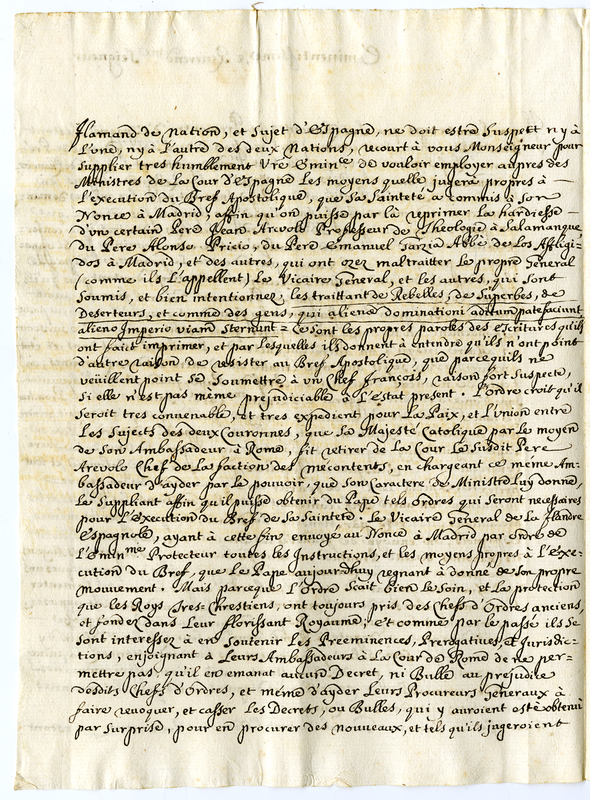 flamand de Nation, et Sujet d'Espagne, ne doit estre Suspett n'y à
L'une, ny à L'autre des deux Nations, recourt à vous Monseigneur pour
supplier tres humblement Vre Emin.ce de vouloir employer aupres des
Ministres de La Cour d'Espagne Les moyens quelle jugera propres à
L'execution du Bref Apostolique, que Sa Sainteté a commis à Son
Nonce à Madrid, affin qu'on puisse par là reprimer La hardiesse
d'un certain Pere Jean Arevolo Professeur de Theologie à Salamanque
du Pere Alonso Prieto, du Pere Emanuel Garzia Abbé de Los Affligi=
dos à Madrid, et des autres, qui ont ozez maltraitter Le propre General
(comme ils L'appellent) Le Vicaire General, et Les autres, qui Sont
Soumis, et bien intentionnez, les traittant de Rebelles, de Superbes, de
Deserteurs, et comme des gens, qui alienæ dominationi aditum patefaciunt
alieno Imperio viam Sternunt = ce sont les propres paroles des escritures qu'ils
ont fait imprimer, et par Lesquelles ils donnent à entendre qu'ils n'ont point
d'autre raison de resister au Bref Apostolique, que parcequils ne
veuillent point Se Soumettre à un Chef françois, raison fort Suspecte,
Si elle n'est pas même prejudiciable à L'Estat present. L'ordre croit qu'il
Seroit tres convenable, et tres expedient pour La Paix, et L'Union entre
Les Sujects des deux Couronnes, que Sa Majesté Catolique par le moyen
de Son Ambassadeur à Rome, fit retirer de La Cour Le Susdit Pere
Arevolo Chef de La faction des mécontents, en chargeant ce meme Am=
bassadeur d'ayder par le pouvoir, que Son Caractere de Ministre Luy donne,
Le Suppliant affin qu'il puisse obtenir du Pape tels ordres qui Seront necessaires
pour L'Execution du Bref de Sa Sainteté. Le Vicaire General de La flandre
Espagnole, ayant à cette fin envoyé au Nonce à Madrid par ordre de
L'Emin.me Protecteur toutes les Instructions, et les moyens propres à L'Exe=
cution du Bref, que Le Pape aujourdhuy regnant à donné de Son propre
mouvement. Mais parceque L'Ordre Scait bien Le Soin, et La protection
que les Roys Tres=Chrestiens, ont toujours pris des Chefs d'Ordres anciens,
et fondez dans Leur florissant Royaume, et comme par le passé ils Se
Sont interessez à en Soutenir Les Preeminences, Prerogatives, et Jurisdic=
tions, enjoignant à Leurs Ambassadeurs à La Cour de Rome de ne per=
mettre pas, qu'il en emanat aucun Decret, ni Bulle au prejudice
desdits Chefs d'Ordres, et même d'ayder Leurs Procureurs Generaux à
faire revoquer, et casser Les Decrets, ou Bulles, qui y auroient esté obtenu
par Surprise, pour en procurer des nouveaux, et tels qu'ils jugeroient